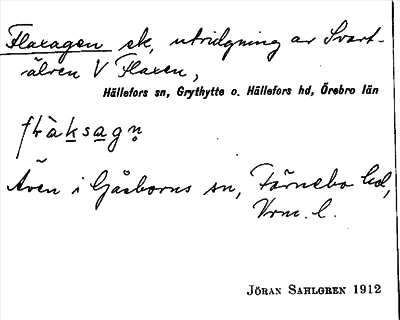 Flaxagen ek, utvidgning av Svart-
älven V Flaxen,
Hällefors sn, Grythytte o. Hällefors hd, Örebro län
Även i Gåsborns sn, Färnebo hd,
Vrm. l.
JÖRAN SAHLGREN 1912